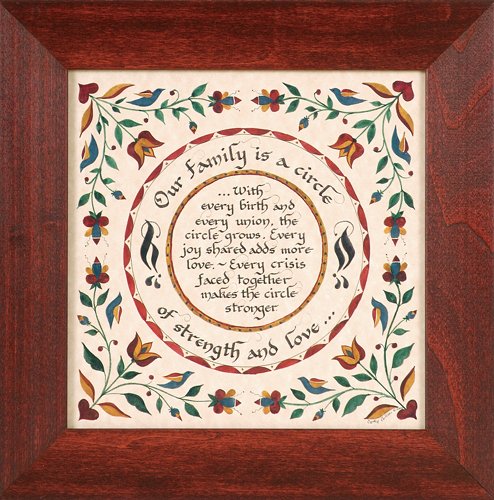 Our Family is a circle
of strength and love...
...With
every birth and
every union, the
circle grows. Every
joy shared adds more
love. ~ Every crisis
faced together
makes the circle
stronger